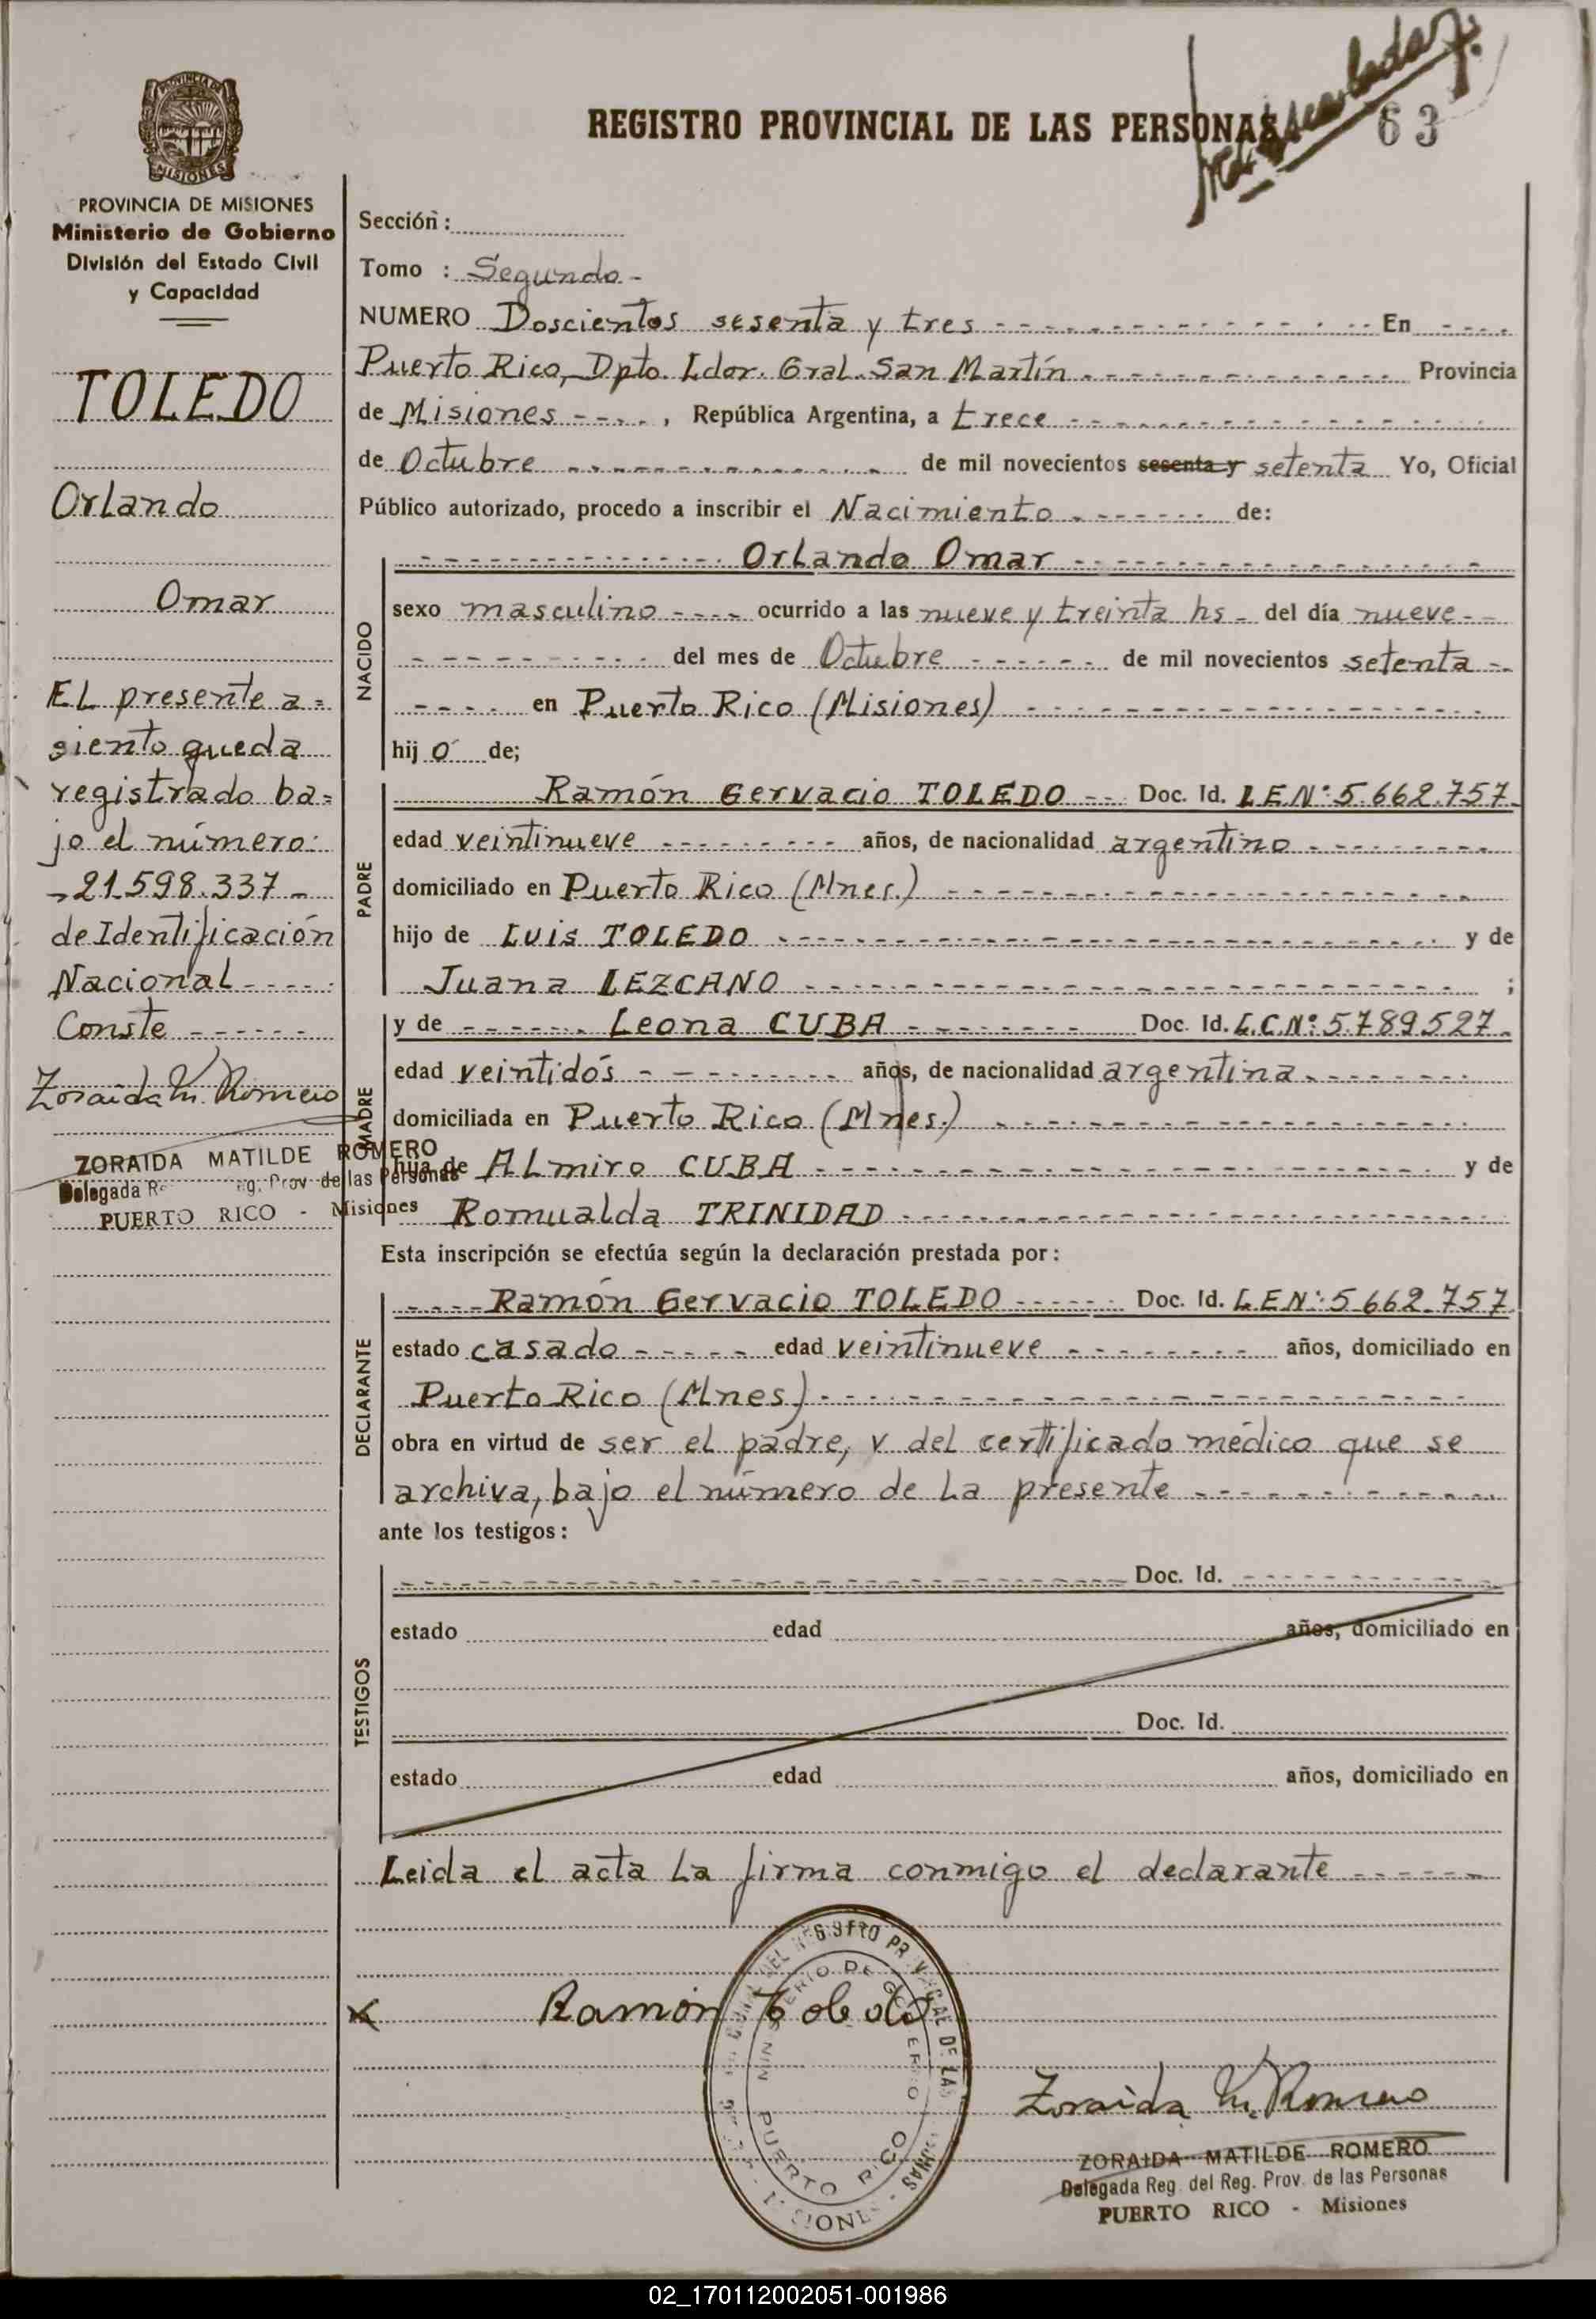 REGISTRO PROVINCIAL DE LAS PERSONAS
63
PROVINCIA DE MISIONES
Ministerio de Gobierno
División del Estado Civil
y Capacidad
TOLEDO
Orlando
Omar
EL presente a=
siento queda
registrado ba=
jo el número:
-21.598.337-
de Identificación
Nacional ----
Conste ------
Zoraida M. Romero
ZORAIDA MATILDE ROMERO
Delegada Reg. Prov. de las Personas
PUERTO RICO - Misiones
Sección:
Tomo : Segundo-
NUMERO Doscientos sesenta y tres --- En ----
Puerto Rico, Dpto. Ldor. Gral. San Martín --- Provincia
de Misiones ----, República Argentina, a trece ---
de Octubre --- de mil novecientos sesenta y setenta Yo, Oficial
Público autorizado, procedo a inscribir el Nacimiento --- de:
NACIDO
--- Orlando Omar ---
sexo masculino ---- ocurrido a las nueve y treinta hs - del día nueve --
--- del mes de Octubre --- de mil novecientos setenta --
---- en Puerto Rico (Misiones) ---
hijo de;
PADRE
Ramón Gervacio TOLEDO -- Doc. Id. L.E.Nº 5.662.757.
edad veintinueve --- años, de nacionalidad argentino ---
domiciliado en Puerto Rico (Mnes.) ---
hijo de Luis TOLEDO --- y de
Juana LEZCANO --- ;
MADRE
y de --- Leona CUBA --- Doc. Id. L.C.Nº: 5.789.527.
edad veintidós --- años, de nacionalidad argentina ---
domiciliada en Puerto Rico (Mnes.) ---
hija de ALmiro CUBA --- y de
Romualda TRINIDAD ---
Esta inscripción se efectúa según la declaración prestada por:
DECLARANTE
---- Ramón Gervacio TOLEDO --- Doc. Id. L.E.Nº: 5.662.757
estado casado --- edad veintinueve --- años, domiciliado en
Puerto Rico (Mnes) ---
obra en virtud de ser el padre, y del certificado médico que se
archiva, bajo el número de La presente ---
ante los testigos:
TESTIGOS
--- Doc. Id. ---
estado edad años, domiciliado en
Doc. Id.
estado edad años, domiciliado en
Leida el acta La firma conmigo el declarante ---
x Ramón Toledo
MINISTERIO DE GOBIERNO
PUERTO RICO
Zoraida M. Romero
ZORAIDA MATILDE ROMERO
Delegada Reg. del Reg. Prov. de las Personas
PUERTO RICO - Misiones
02_170112002051-001986